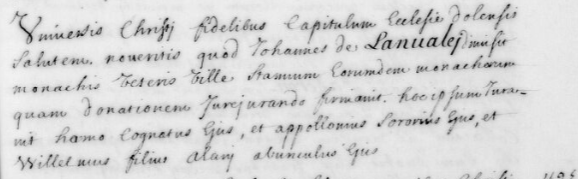 Universis Christi fidelibus Capitulum Ecclesie Dolensis
Salutem. noveritis quod Johannes de Lanvalej dimisit
monachis Veteris Ville Stannum Eorumdem monachorum
quam donationem Jurejurando firmavit. hoc ipsum Jura-
vit hamo Cognatus Ejus, et appollonius Sororius Ejus, et
Willelmus filius alani abunculus Ejus